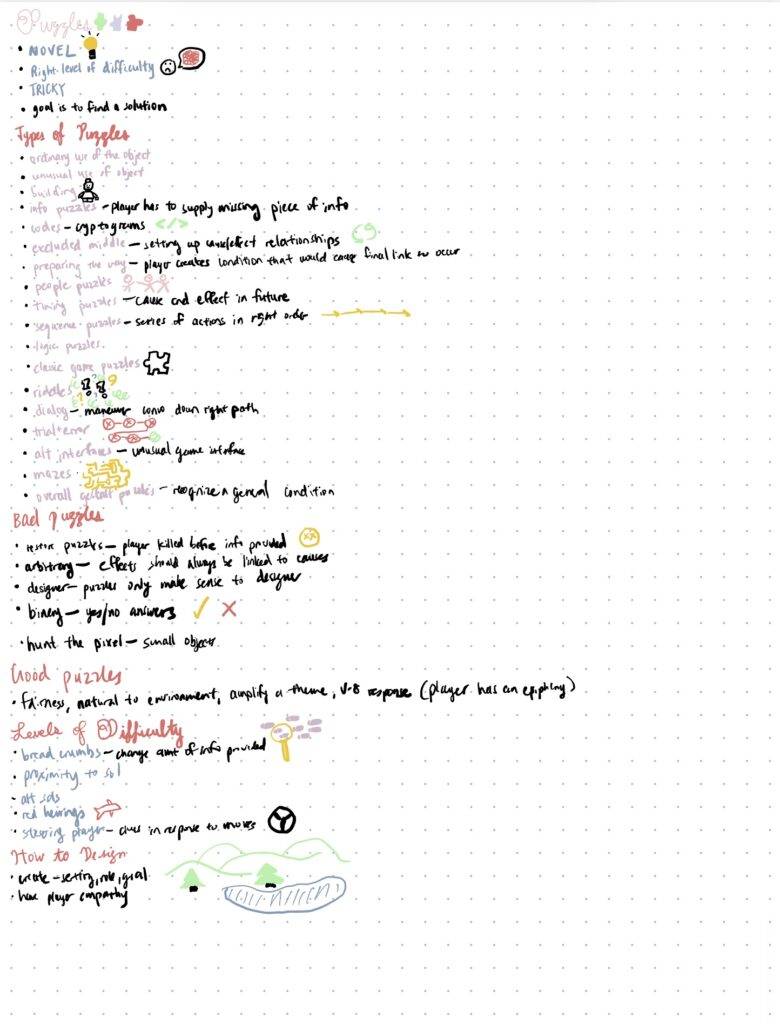 Puzzles
• NOVEL
• Right level of difficulty
• TRICKY
• goal is to find a solution
Types of Puzzles
• ordinary use of the object
• unusual use of object
• building
• info puzzles - player has to supply missing piece of info
• codes - cryptograms </>
• excluded middle - setting up cause/effect relationships
• preparing the way - player creates condition that would cause final link to occur
• people puzzles
• timing puzzles - cause and effect in future
• sequence puzzles - series of actions in right order
• logic puzzles.
• classic game puzzles
• riddles
• dialog - maneuver convo down right path
• trial + error
• alt interfaces - unusual game interface
• mazes
• overall gestalt puzzles - recognize a general condition
Bad puzzles
• restore puzzles - player killed before info provided
• arbitrary - effects should always be linked to causes
• designer - puzzles only make sense to designer
• binary - yes/no answers
• hunt the pixel - small objects
Good puzzles
• fairness, natural to environment, amplify a theme, V-8 response (player has an epiphany)
Levels of Difficulty
• bread crumbs - change amt of info provided
• proximity to sol
• alt sols
• red herrings
• steering player - clues in response to moves
How to Design
• create - setting, role, goal
• have player empathy